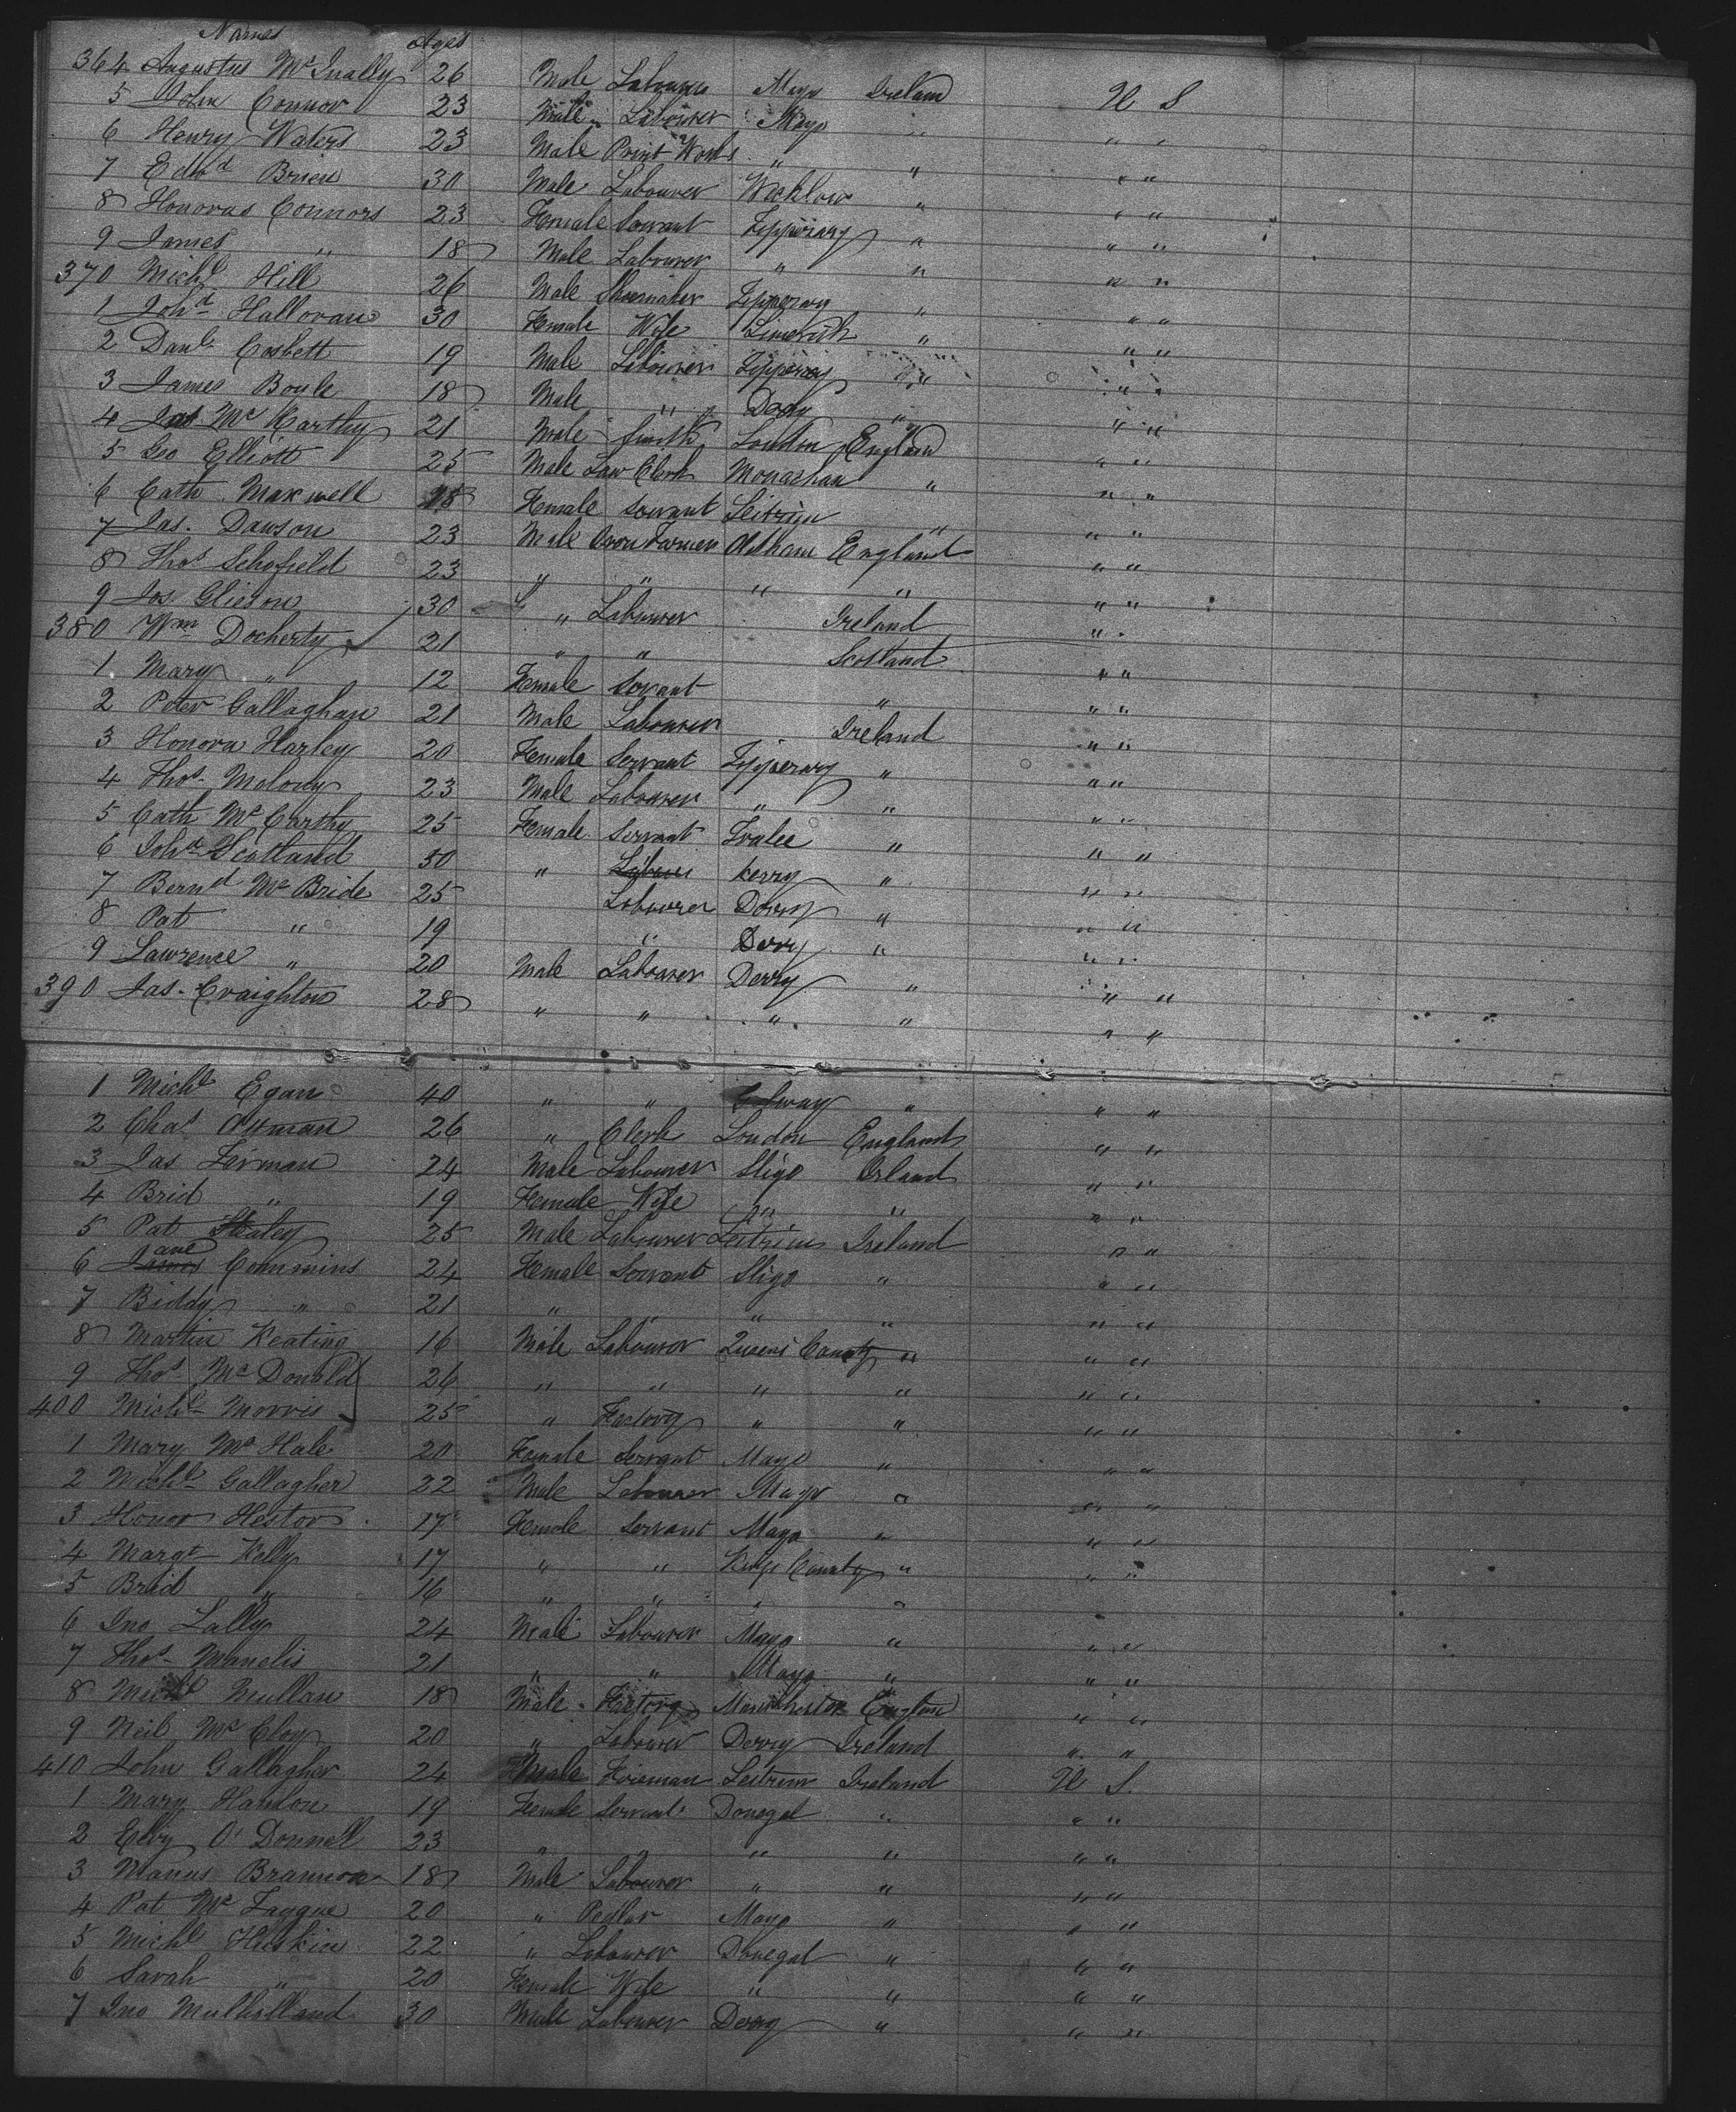 Names Ages
364 Augustus McInally 26 Male Labourer Mayo Ireland U S
5 John Connor 23 Male Labourer Mayo " " "
6 Henry Waters 23 Male Print Works " " " "
7 Edwd Brien 30 Male Labourer Wicklow " " "
8 Honoras Connors 23 Female Servant Tipperary " " "
9 James " 18 Male Labourer " " " "
370 Michl Hill 26 Male Shoemaker Tipperary " " "
1 Joha Halloran 30 Female Wife Limerick " " "
2 Danl Cosbett 19 Male Labourer Tipperary " " "
3 James Boyle 18 Male " Derry " " "
4 Jas Mc Karthy 21 Male Smith London England " "
5 Geo Elliott 25 Male Law Clerk Monaghan " " "
6 Cath Maxwell 18 Female Servant Leitrim " " "
7 Jas. Dawson 23 Male Iron Turner Oldham England " "
8 Thos Schofield 23 " " " " " "
9 Jos Glieson 30 " Labourer Ireland " "
380 Wm Docherty 21 " " Scotland " "
1 Mary " 12 Female Servant " " "
2 Peter Gallaghan 21 Male Labourer Ireland " "
3 Honora Harley 20 Female Servant Tipperary " " "
4 Thos Molony 23 Male Labourer " " " "
5 Cath McCarthy 25 Female Servant Tralee " " "
6 Joha Scotland 50 " Kerry " " "
7 Bernd McBride 25 Labourer Derry " " "
8 Pat " 19 " Derry " " "
9 Lawrence " 20 Male Labourer Derry " " "
390 Jas. Craighton 28 " " " " " "
1 Michl Egan 40 " " Galway " " "
2 Chas 26 " Clerk London England " "
3 Jas Firman 24 Male Labourer Sligo Irland " "
4 Brid " 19 Female Wife " " " "
5 Pat Healey 25 Male Labourer Leitrim Ireland " "
6 Jane Commins 24 Female Servant Sligo " " "
7 Biddy " 21 " " " " " "
8 Martin Keating 16 Male Labourer Queens County " " "
9 Thos McDonald 26 " " " " " "
400 Michl Morris 25 " Factory " " " "
1 Mary McHale 20 Female Servant Mayo " " "
2 Michl Gallagher 22 Male Labourer Mayo " " "
3 Honor Hestor 17 Female Servant Mayo " " "
4 Margt Kelly 17 " " Kings County " " "
5 Brid " 16 " " " " " "
6 Jno Lally 24 Male Labourer Mayo " " "
7 Thos Manelis 21 " " Mayo " " "
8 Michl Mullan 18 Male Factory Manchester England " "
9 Neil McCloy 20 " Labourer Derry Ireland " "
410 John Gallagher 24 Male Fireman Leitrim Ireland U S.
1 Mary Hanlon 19 Female Servant Donegal " " "
2 O'Donnell 23 " " " " " "
3 Manus Brannon 18 Male Labourer " " " "
4 Pat McTaggue 20 " Pedlar Mayo " " "
5 Michl Huskin 22 " Labourer Donegal " " "
6 Sarah " 20 Female Wife " " " "
7 Jno Mulholland 30 Male Labourer Derry " " "